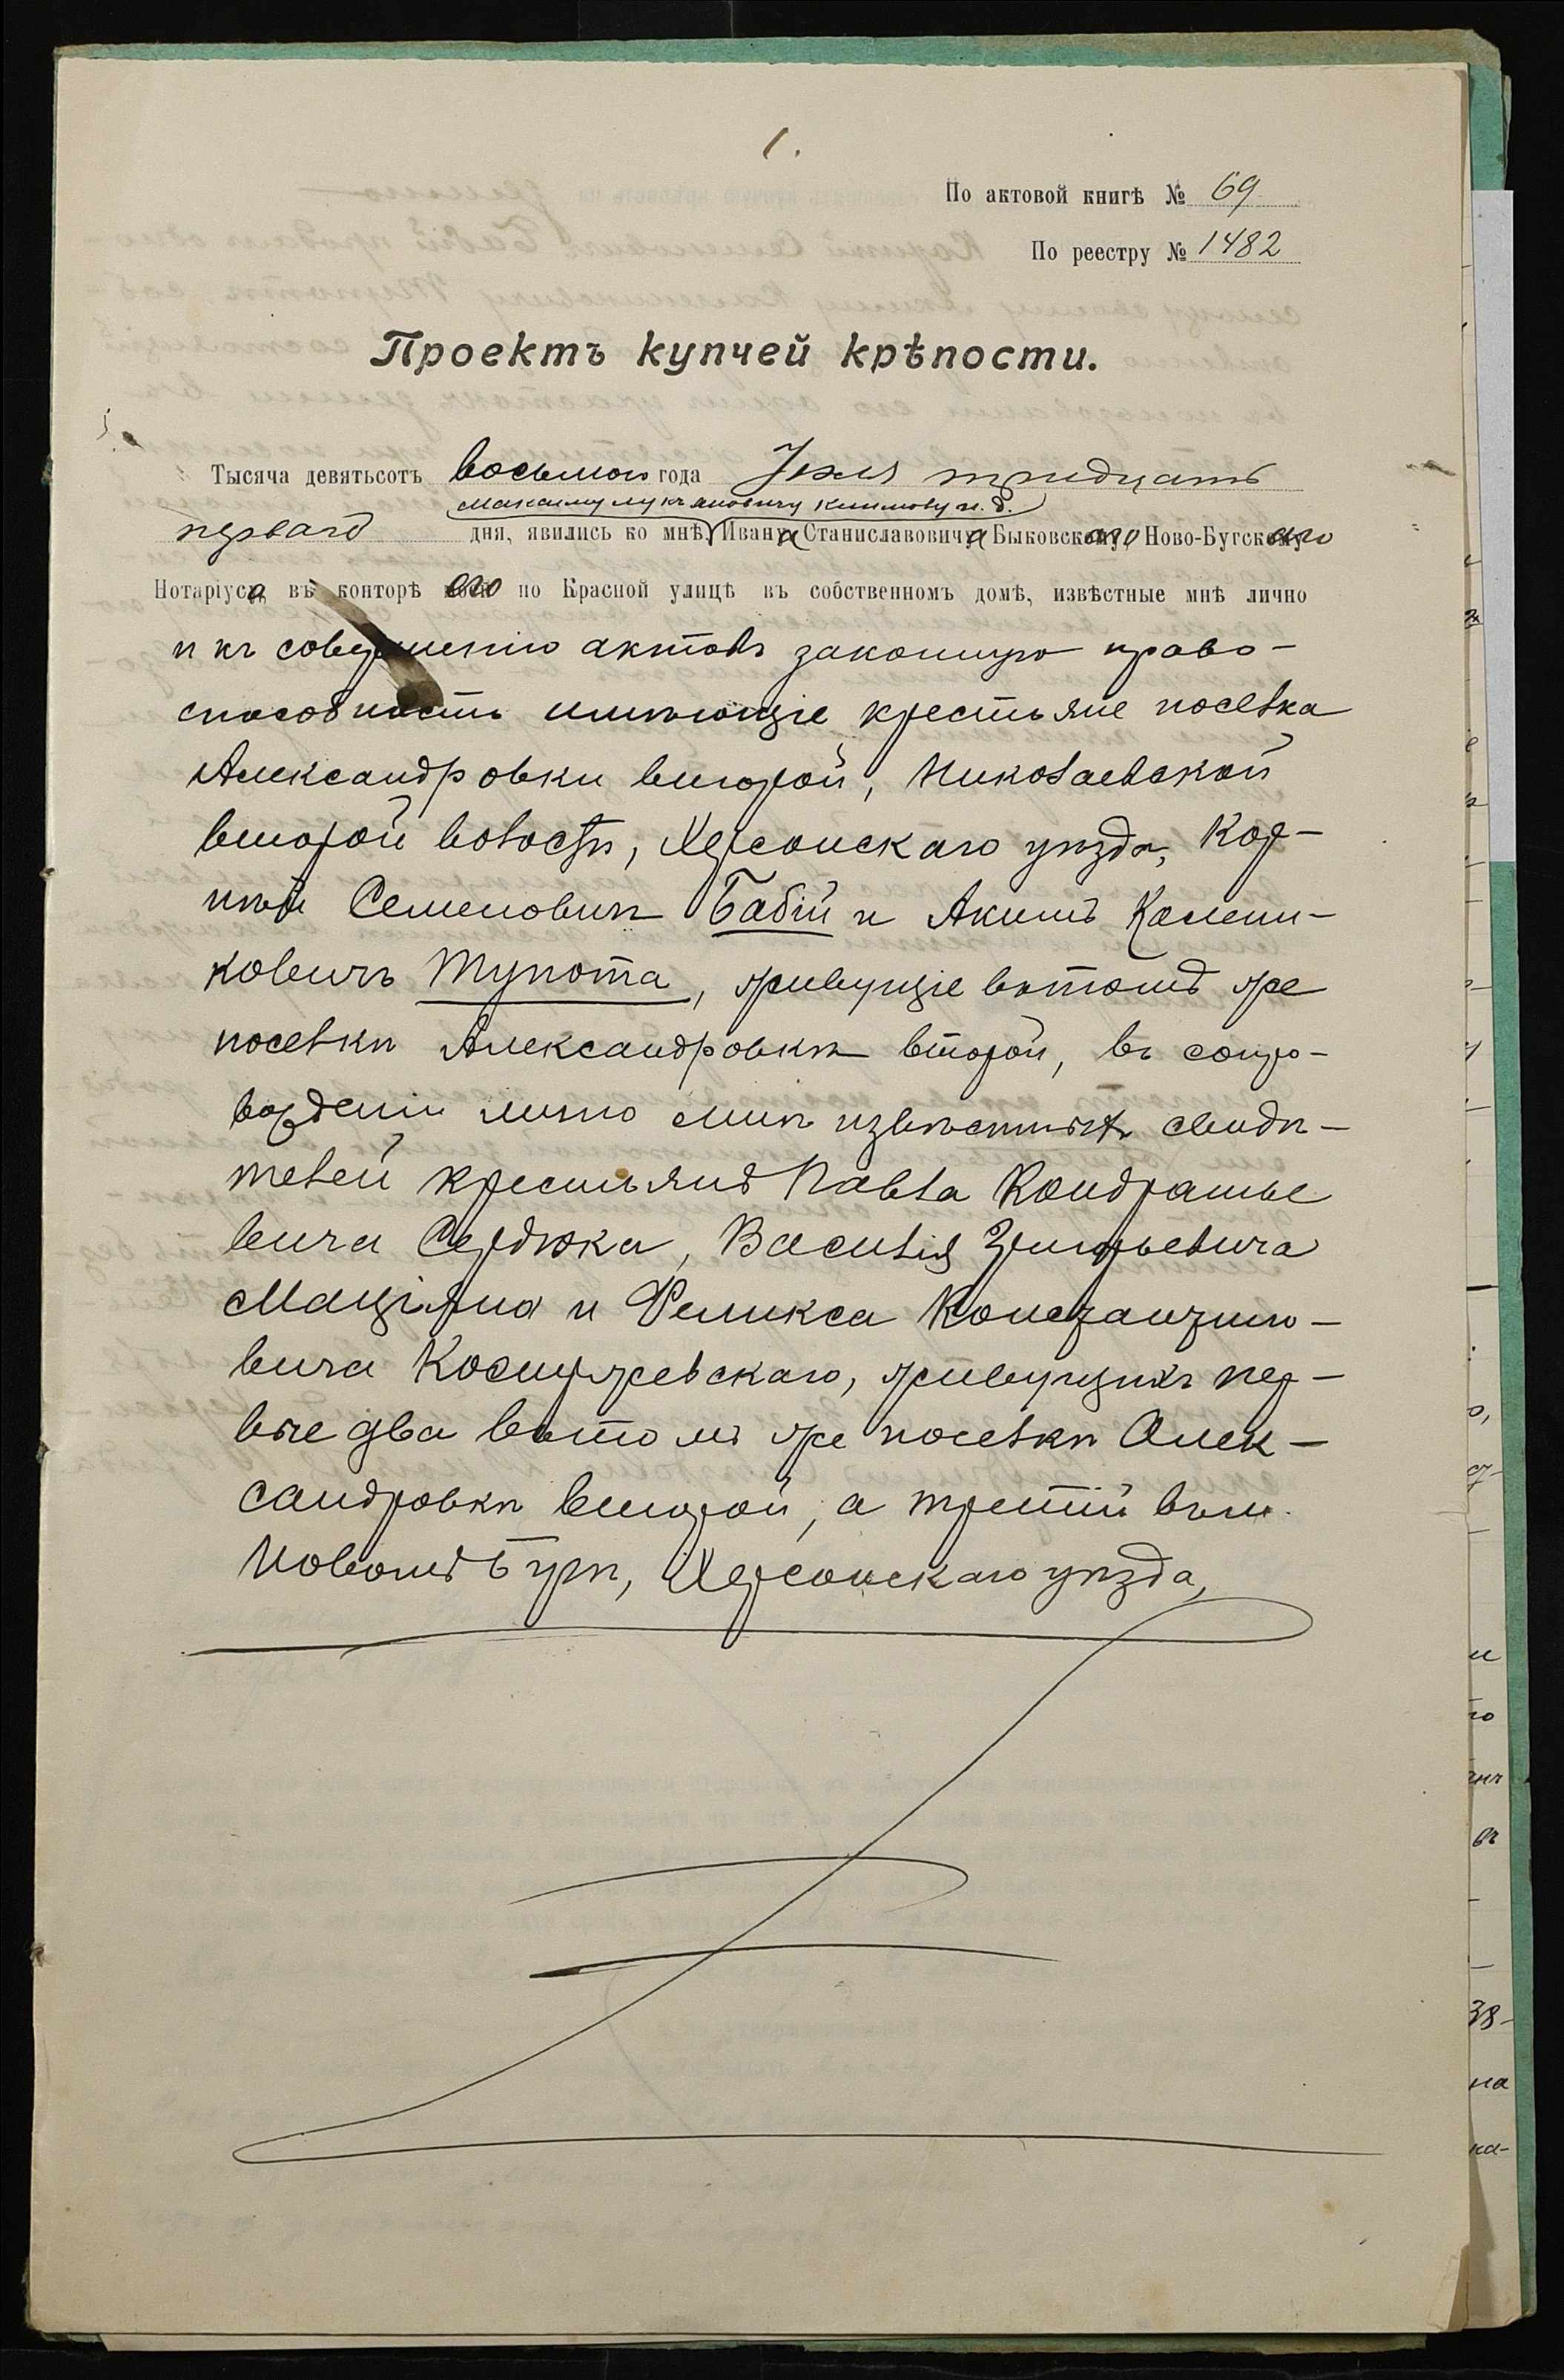 1.
По актовой книгѣ № 69
По реестру № 1482
Проектъ купчей крѣпости.
Тысяча девятьсотъ восьмого года Іюля тридцать
Максиму Лукьяновичу Климову и. д.
перваго дня, явились ко мнѣ, Ивана Станиславовича Быковскаго Ново-Бугскаго
Нотаріуса, въ конторѣ его по Красной улицѣ въ собственномъ домѣ, извѣстные мнѣ лично
и къ совершенію актовъ законную право-
способность имѣющіе крестьяне поселка
Александровки второй, Николаевской
второй волости, Херсонскаго уѣзда, Кор-
нѣй Семеновичъ Бабій и Акимъ Калени-
ковичъ Тупота, живущіе въ томъ же
поселкѣ Александровкѣ второй, въ сопро-
вожденіи лично мнѣ извѣстныхъ свидѣ-
телей крестьянъ Павла Кондратье
вича Сердюка, Василія Григорьевича
и Феликса Константино-
вича живущихъ пер-
вые два въ томъ же поселкѣ Алек-
сандровкѣ второй, а третій въ м.
Новомъ Бугѣ, Херсонскаго уѣзда,